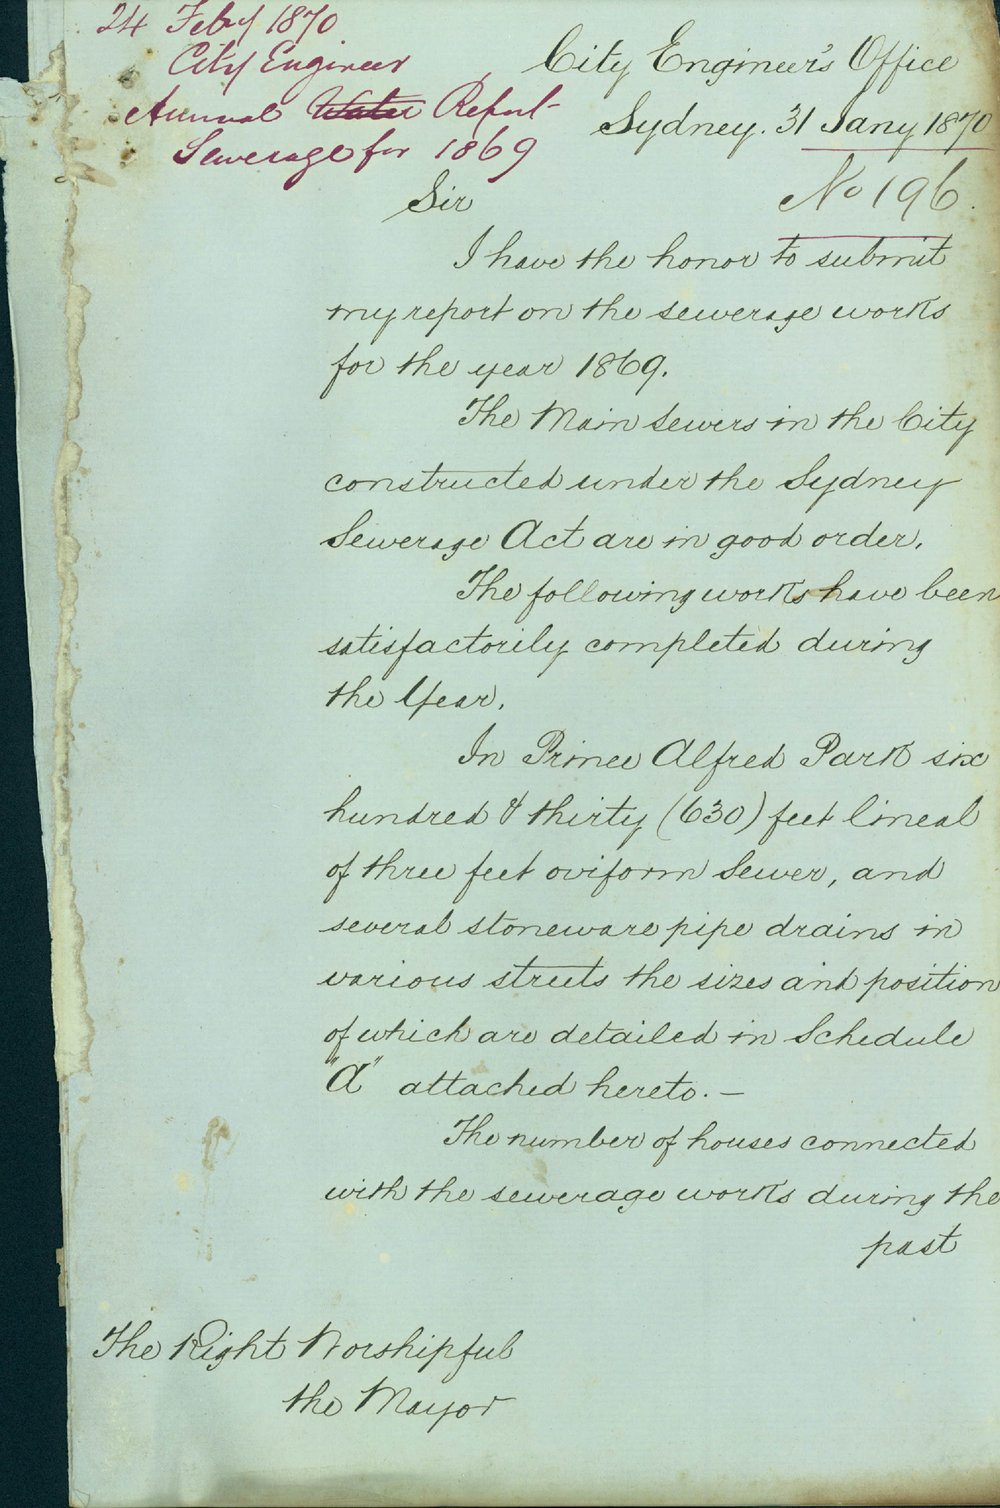 24 Feby 1870
City Engineer
Annual Water Report
Sewerage for 1869
City Engineer's Office
Sydney. 31 Jany 1870
No 196.
Sir
I have the honor to submit
my report on the sewerage works
for the year 1869.
The Main Sewers in the City
constructed under the Sydney
Sewerage Act are in good order.
The following works have been
satisfactorily completed during
the Year.
In Prince Alfred Park six
hundred & thirty (630) feet lineal
of three feet oviform Sewer, and
several stoneware pipe drains in
various streets the sizes and position
of which are detailed in Schedule
"A" attached hereto. —
The number of houses connected
with the sewerage works during the
past
The Right Worshipful
the Mayor